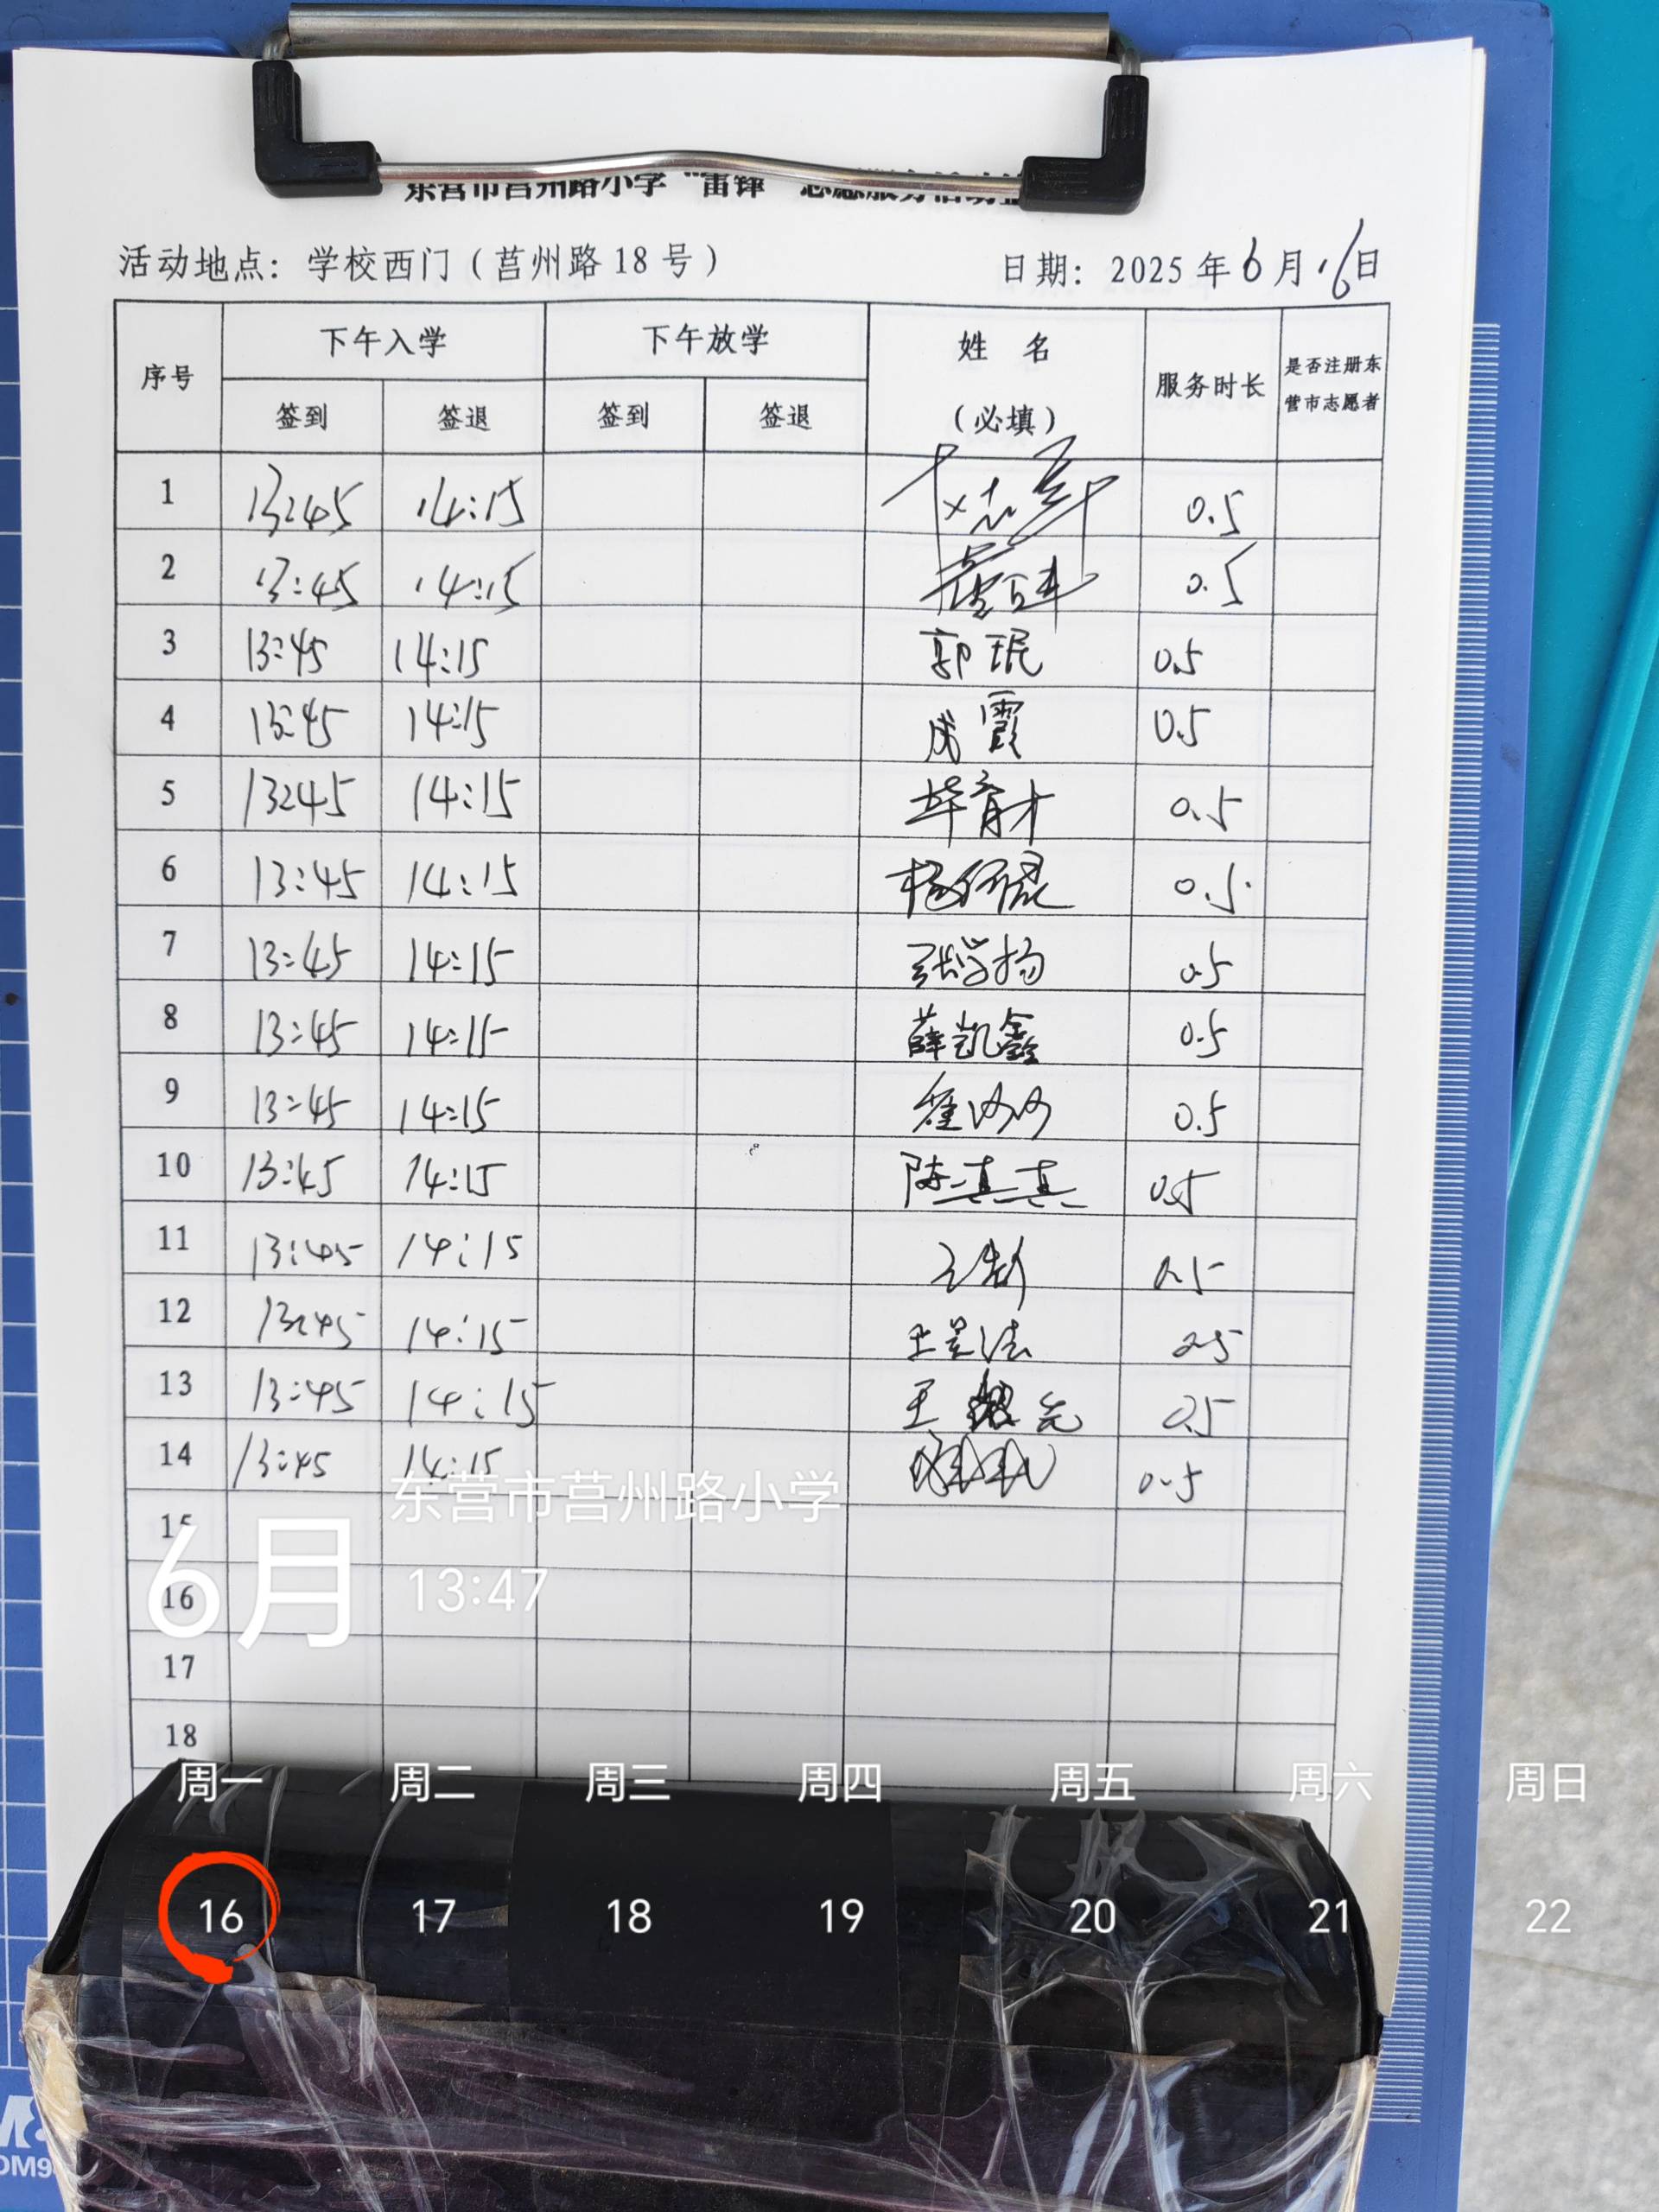 东营市莒州路小学“雷锋”志愿服务活动
活动地点：学校西门（莒州路18号） 日期：2025年6月16日
序号 下午入学 下午放学 姓名（必填） 服务时长 是否注册东营市志愿者
签到 签退 签到 签退
1 13:45 14:15 0.5
2 13:45 14:15 0.5
3 13:45 14:15 郭珉 0.5
4 13:45 14:15 成霞 0.5
5 13:45 14:15 毕育才 0.5
6 13:45 14:15 0.5
7 13:45 14:15 张学扬 0.5
8 13:45 14:15 薛凯鑫 0.5
9 13:45 14:15 0.5
10 13:45 14:15 陈真真 0.5
11 13:45 14:15 0.5
12 13:45 14:15 0.5
13 13:45 14:15 王 0.5
14 13:45 14:15 0.5
15
16
17
18
东营市莒州路小学
6月 13:47
周一 周二 周三 周四 周五 周六 周日
16 17 18 19 20 21 22